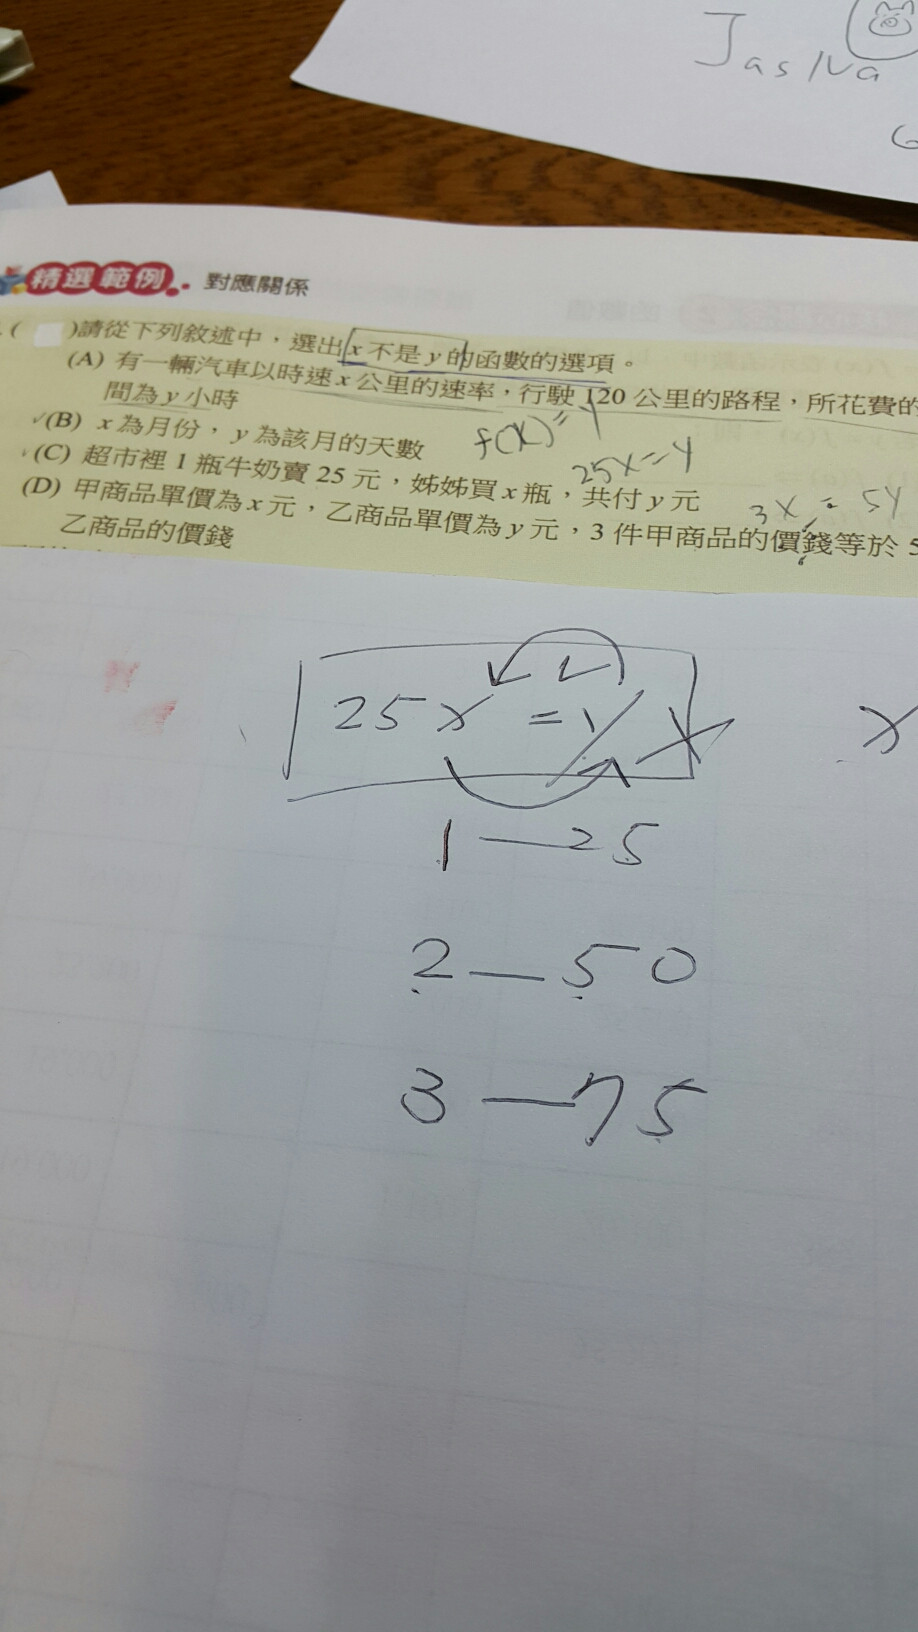 Jas
精選範例 對應關係
( )請從下列敘述中，選出x不是y的函數的選項。
(A) 有一輛汽車以時速x公里的速率，行駛120公里的路程，所花費的
間為y小時
(B) x為月份，y為該月的天數
f(x)=y
(C) 超市裡1瓶牛奶賣25元，姊姊買x瓶，共付y元
25x=y
(D) 甲商品單價為x元，乙商品單價為y元，3件甲商品的價錢等於5
3x=5y
乙商品的價錢
25x=y
x
1—25
2—50
3—75